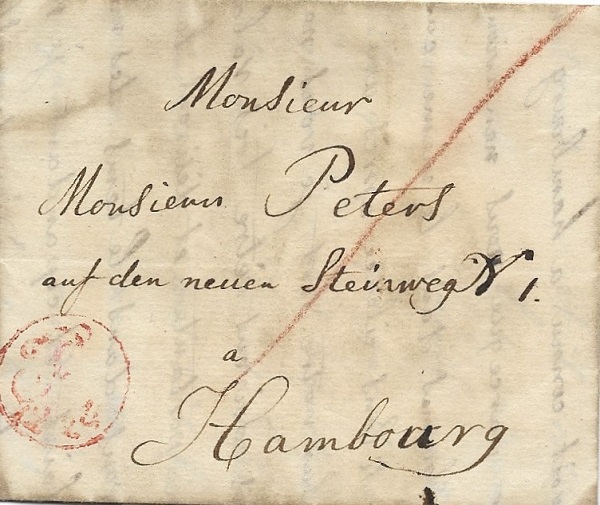 Monsieur
Monsieur Peters
auf den neuen Steinweg N 1.
a
Hambourg